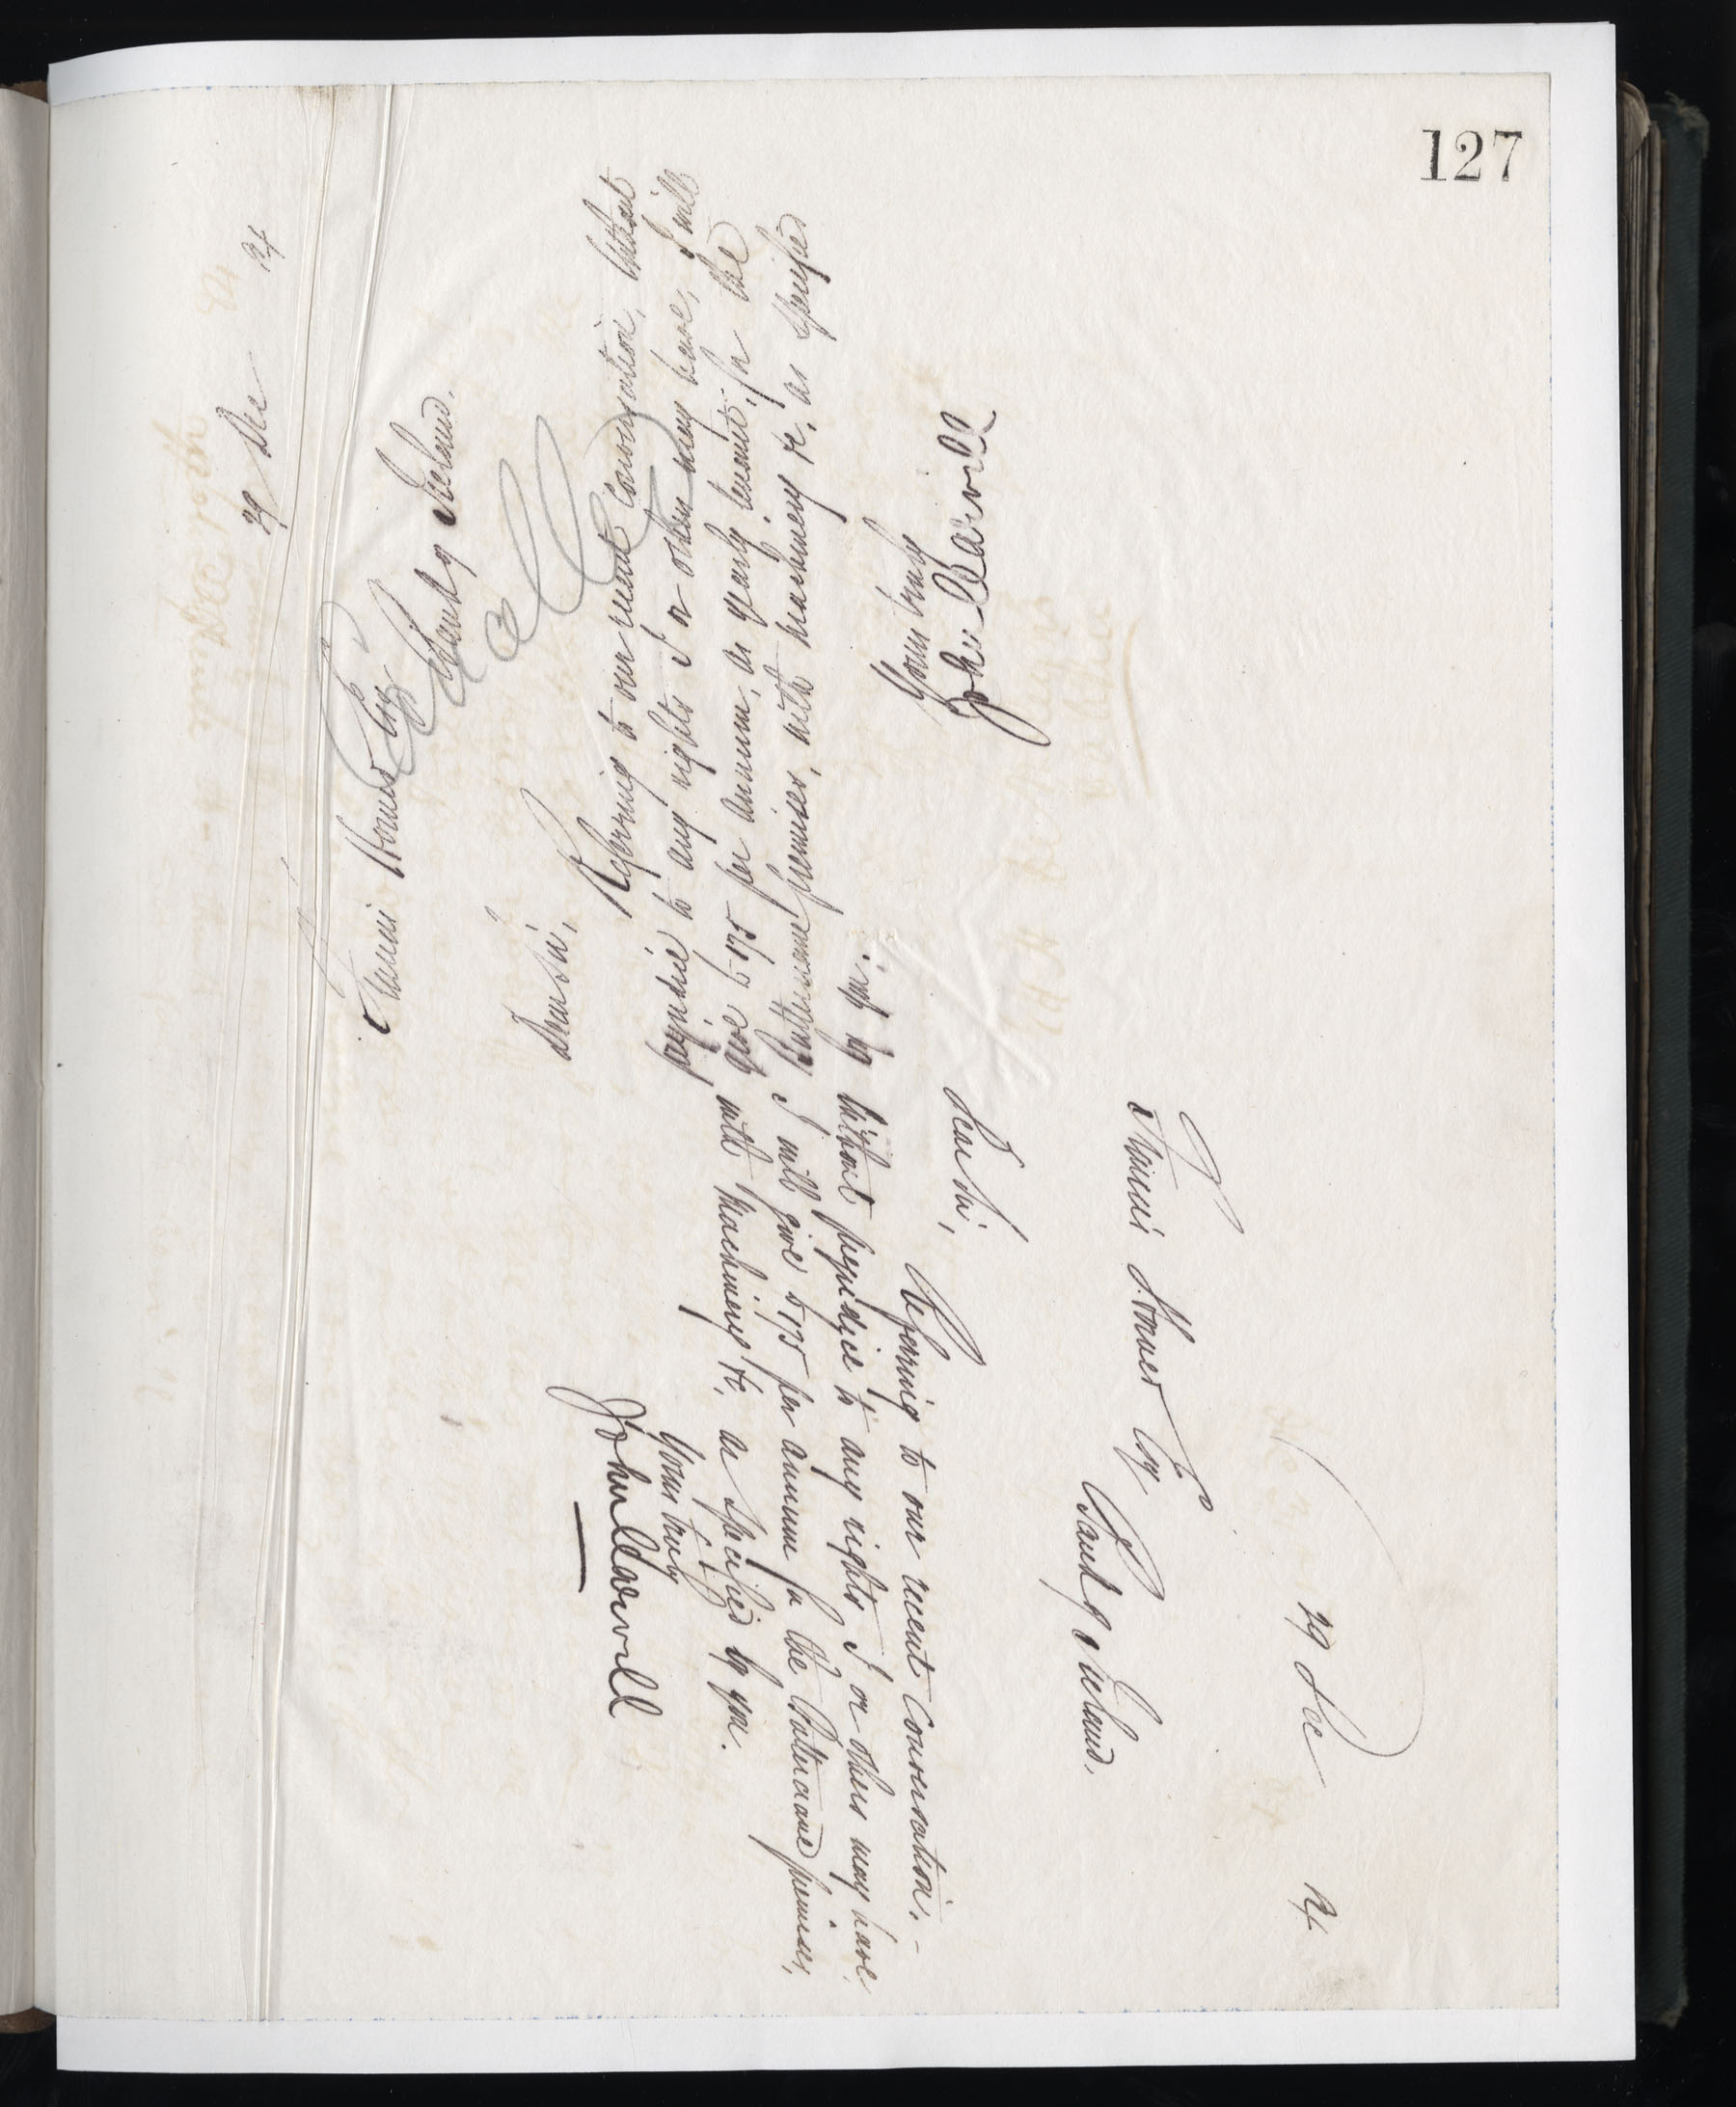 127
29 Dec 94
Francis Stoner Esq
Bank of Ireland.
Dear Sir,
Referring to our recent conversation, without
prejudice to any rights I or others may have, I will
give £175 per annum, as yearly tenant, for the
premises, with machinery &c, as specified
by you.
Yours truly
John Carvill
29 Dec 94
Francis Stoner Esq
Bank of Ireland.
Dear Sir,
Referring to our recent conversation. -
without prejudice to any rights I or others may have
I will give £175 per annum for the premises,
with machinery &c, as specified by you.
Yours truly
John Carvill